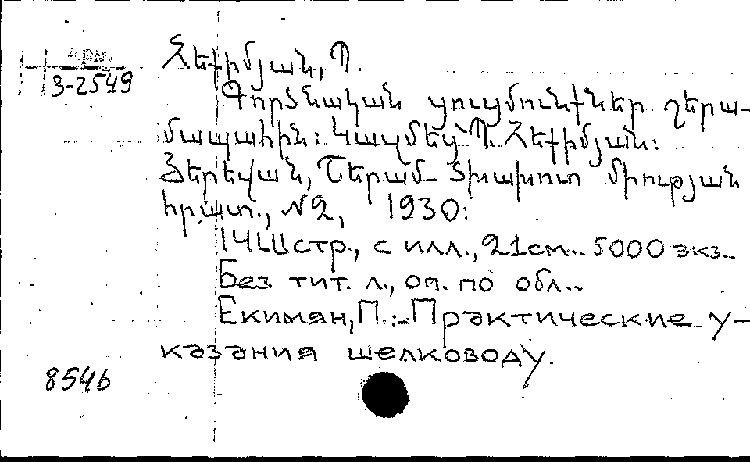 арм.
3-2549
Հեքիմյան, Պ.
Գործնական ցուցմունքներ շերա-
մապահին: Կազմեց՝ Պ. Հեքիմյան:
Յերեվան, Շերամ- Ծխախոտ միության
հրատ., №2, 1930:
14 стр., с илл., 21см.. 5000 экз..
Без тит. л., оп. по обл..
Екимян, П.:-Практические у-
казания шелководу.
8546